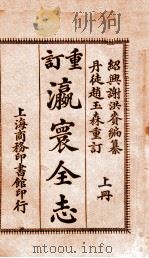 重訂
紹興謝洪賚編纂
丹徒趙玉森重訂
上冊
瀛寰全志
上海商務印書館印行
www.youtu.com